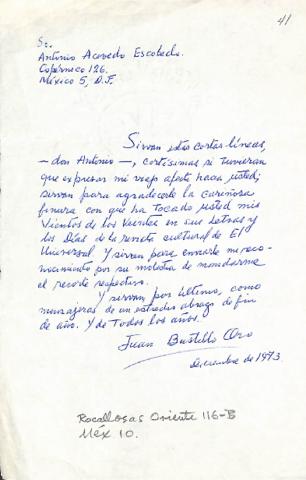 41
Sr.
Antonio Acevedo Escobedo.
Copérnico 126.
México 5, D.F.
Sirvan estas cortas líneas,
—don Antonio—, cortísimas si tuvieran
que expresar mi viejo afecto hacia usted;
sirvan para agradecerle la cariñosa
finura con que ha tocado usted mis
Vientos de los Veintes en sus Letras y
los Días de la revista cultural de El
Universal. Y sirvan para enviarle mi reco-
nocimiento por su molestia de mandarme
el recorte respectivo.
Y sirvan por último, como
mensajeras de un estrecho abrazo de fin
de año. Y de todos los años.
Juan Bustillo Oro
Diciembre de 1973
Rocallosas Oriente 116-B
Méx 10.